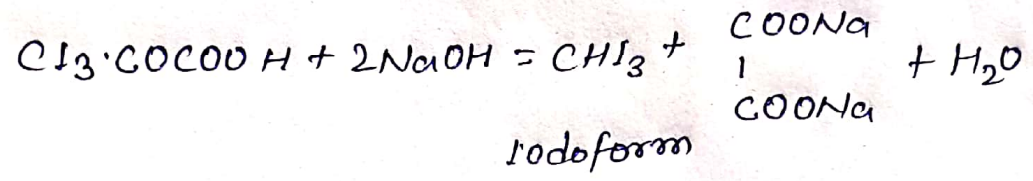 CI3·COCOOH + 2NaOH = CHI3 + COONa
|
COONa + H2O
Iodoform